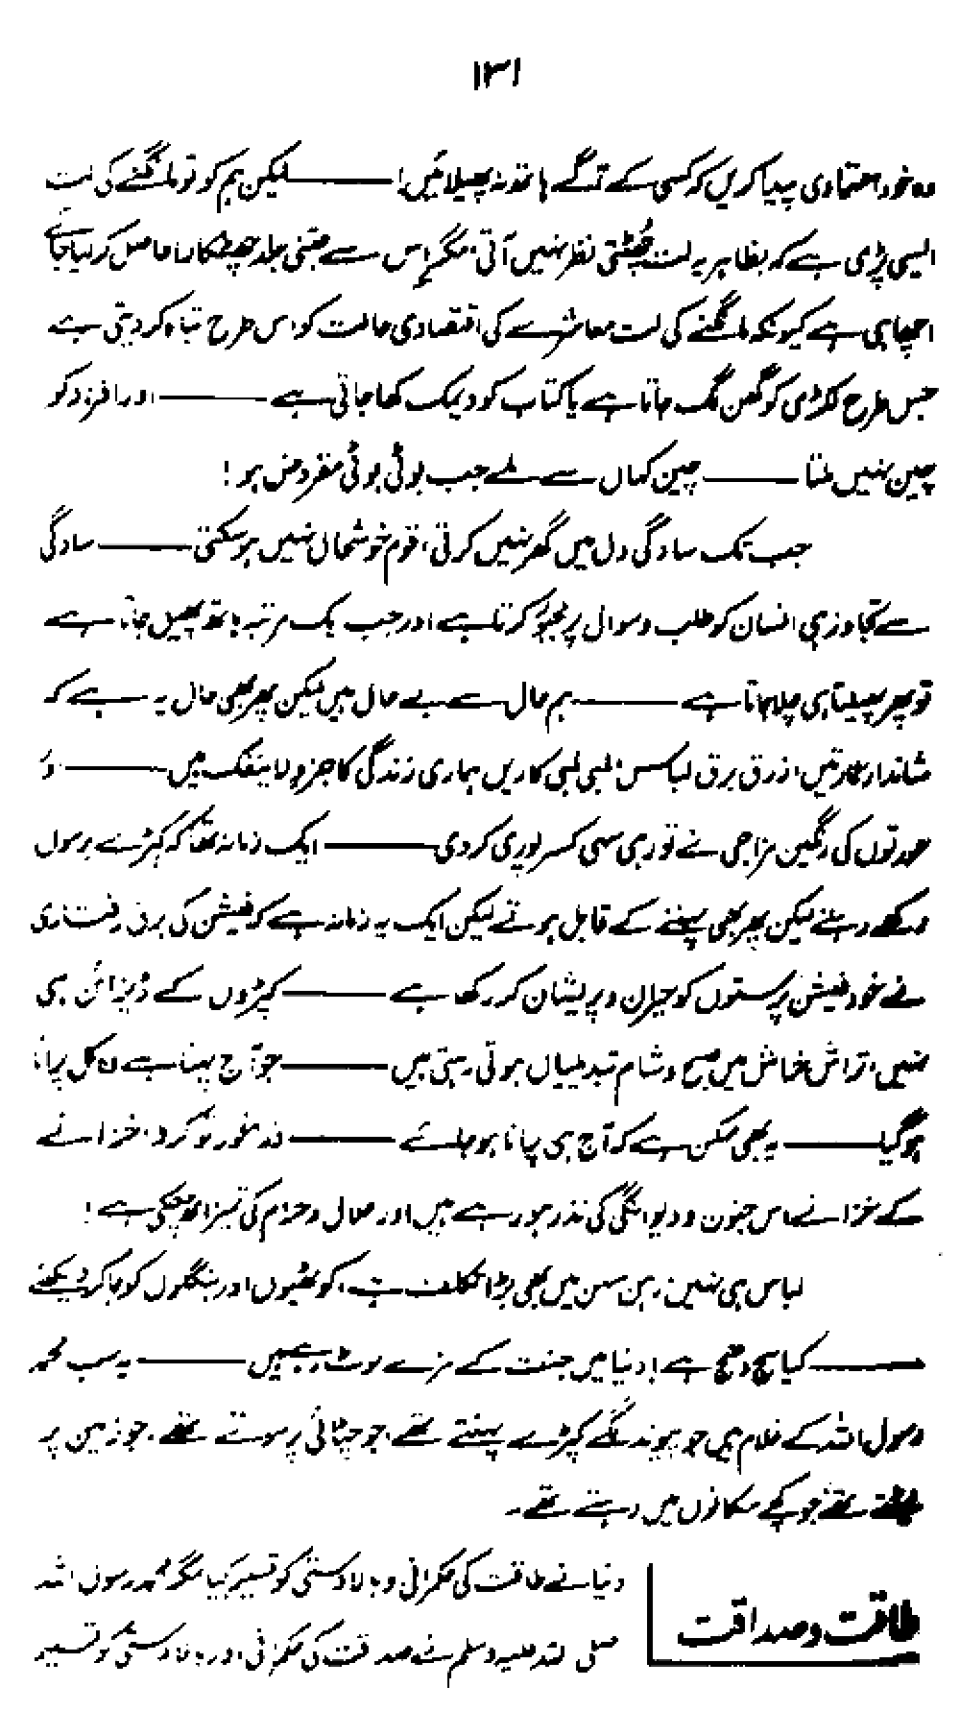 ۱۳۱
وہ خود اعتمادی پیدا کریں کہ کسی کے آگے ہاتھ نہ پھیلائیں! ——— لیکن ہم کو تو مانگنے کی لت
ایسی پڑی ہے کہ بظاہر یہ لت چھٹتی نظر نہیں آتی، مگر اس سے جتنی جلد چھٹکارا حاصل کر لیا جائے
اچھا ہی ہے کیونکہ مانگنے کی لت معاشرے کی اقتصادی حالت کو اس طرح تباہ کر دیتی ہے
جس طرح لکڑی کو گھن لگ جاتا ہے یا کتاب کو دیمک کھا جاتی ہے ——— اور افراد کو
چین نہیں ملتا ——— چین کہاں سے ملے جب بوٹی بوٹی مقروض ہو!
جب تک سادگی دل میں گھر نہیں کرتی، قوم خوشحال نہیں ہو سکتی ——— سادگی
سے تجاوز ہی انسان کو طلب و سوال پر مجبور کرتا ہے اور جب ایک مرتبہ ہاتھ پھیل جاتا ہے
تو پھر پھیلتا ہی چلا جاتا ہے ——— ہم حال سے بے حال ہیں لیکن پھر بھی حال یہ ہے کہ
شاندار عمارتیں، زرق برق لباس، لمبی لمبی کاریں ہماری زندگی کا جزو لاینفک ہیں ———
عورتوں کی رنگین مزاجی نے تو رہی سہی کسر پوری کر دی ——— ایک زمانہ تھا کہ کپڑے برسوں
رکھے رہتے لیکن پھر بھی پہننے کے قابل ہوتے لیکن ایک یہ زمانہ ہے کہ فیشن کی برق رفتاری
نے خود فیشن پرستوں کو حیران و پریشان کر رکھا ہے ——— کپڑوں کے ڈیزائن ہی
نہیں، تراش خراش میں صبح و شام تبدیلیاں ہوتی رہتی ہیں ——— جو آج پہنا ہے وہ کل پرانا
ہو گیا ——— یہ بھی ممکن ہے کہ آج ہی پرانا ہو جائے ——— ذرا غور تو کرو، خزانے
کے خزانے اس جنون و دیوانگی کی نذر ہو رہے ہیں اور حلال و حرام کی تمیز اٹھ چکی ہے!
لباس ہی نہیں، رہن سہن میں بھی بڑا تکلف ہے، کوٹھیوں اور بنگلوں کو جا کر دیکھئے
——— کیا سج دھج ہے! دنیا میں جنت کے مزے لوٹ رہے ہیں ——— یہ سب محمد
رسول اللہ کے غلام ہیں جو پیوند لگے کپڑے پہنتے تھے، جو چٹائی پر سوتے تھے، جو زمین پر
بیٹھتے تھے، جو کچے مکانوں میں رہتے تھے۔
طاقت و صداقت
دنیا نے طاقت کی حکمرانی و بالا دستی کو تسلیم کیا مگر محمد رسول اللہ
صلی اللہ علیہ وسلم نے صداقت کی حکمرانی اور بالا دستی کو تسلیم